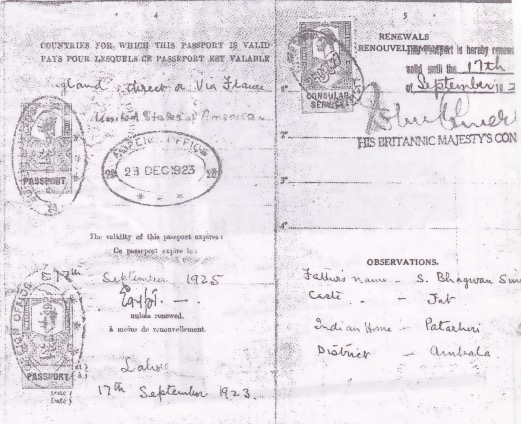 4
COUNTRIES FOR WHICH THIS PASSPORT IS VALID
PAYS POUR LESQUELS CE PASSEPORT EST VALABLE
direct or Via France
United States of America
PASSPORT
FOREIGN OFFICE
23 DEC 1923
The validity of this passport expires:
Ce passeport expire le:
17th
September 1925
Egypt. —
unless renewed.
à moins de renouvellement.
PASSPORT
Lahore
17th September 1923.
5
RENEWALS
RENOUVELLEMENTS
This Passport is hereby renew
valid until the 17th
of September 193
CONSULAR
SERVICE
HIS BRITANNIC MAJESTY'S CON
2
3
4
OBSERVATIONS.
Father's name – S. Bhagwan Sin
Caste – Jat
Indian Home –
District – Ambala